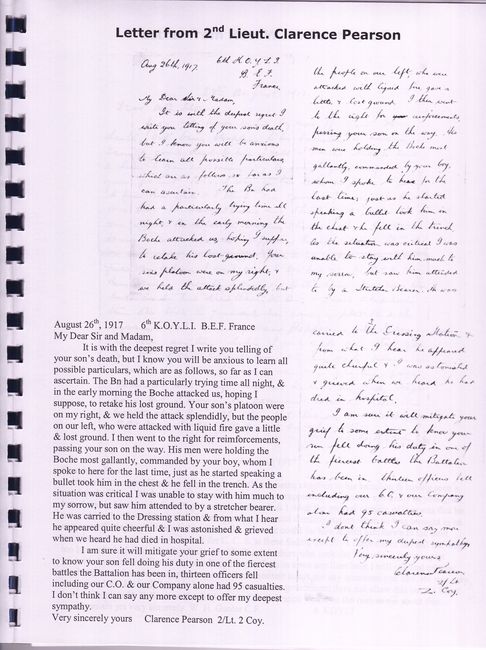 Letter from 2nd Lieut. Clarence Pearson
Aug 26th, 1917 6th K.O.Y.L.I.
B.E.F.
France
My Dear Sir & Madam,
It is with the deepest regret I
write you telling of your son's death,
but I know you will be anxious
to learn all possible particulars,
which are as follows, so far as I
can ascertain. The Bn had
had a particularly trying time all
night, & in the early morning the
Boche attacked us, hoping I suppose,
to retake his lost ground. Your
sons platoon were on my right, &
we held the attack splendidly, but
the people on our left, who were
attacked with liquid fire gave a
little & lost ground. I then went
to the right for reinforcements,
passing your son on the way. His
men were holding the Boche most
gallantly, commanded by your boy,
whom I spoke to here for the
last time, just as he started
speaking a bullet took him in
the chest & he fell in the trench.
As the situation was critical I was
unable to stay with him much to
my sorrow, but saw him attended
to by a Stretcher Bearer. He was
carried to the Dressing Station &
from what I hear he appeared
quite cheerful & I was astonished
& grieved when we heard he had
died in hospital.
I am sure it will mitigate your
grief to some extent to know your
son fell doing his duty in one of
the fiercest battles the Battalion
has been in, thirteen officers fell
including our C.O. & our Company
alone had 95 casualties.
I dont think I can say more
except to offer my deepest sympathy.
Very sincerely yours
Clarence Pearson
2/Lt.
2 Coy.
August 26th, 1917 6th K.O.Y.L.I. B.E.F. France
My Dear Sir and Madam,
It is with the deepest regret I write you telling of
your son's death, but I know you will be anxious to learn all
possible particulars, which are as follows, so far as I can
ascertain. The Bn had a particularly trying time all night, &
in the early morning the Boche attacked us, hoping I
suppose, to retake his lost ground. Your son's platoon were
on my right, & we held the attack splendidly, but the people
on our left, who were attacked with liquid fire gave a little
& lost ground. I then went to the right for reimforcements,
passing your son on the way. His men were holding the
Boche most gallantly, commanded by your boy, whom I
spoke to here for the last time, just as he started speaking a
bullet took him in the chest & he fell in the trench. As the
situation was critical I was unable to stay with him much to
my sorrow, but saw him attended to by a stretcher bearer.
He was carried to the Dressing station & from what I hear
he appeared quite cheerful & I was astonished & grieved
when we heard he had died in hospital.
I am sure it will mitigate your grief to some extent
to know your son fell doing his duty in one of the fiercest
battles the Battalion has been in, thirteen officers fell
including our C.O. & our Company alone had 95 casualties.
I don't think I can say any more except to offer my deepest
sympathy.
Very sincerely yours Clarence Pearson 2/Lt. 2 Coy.